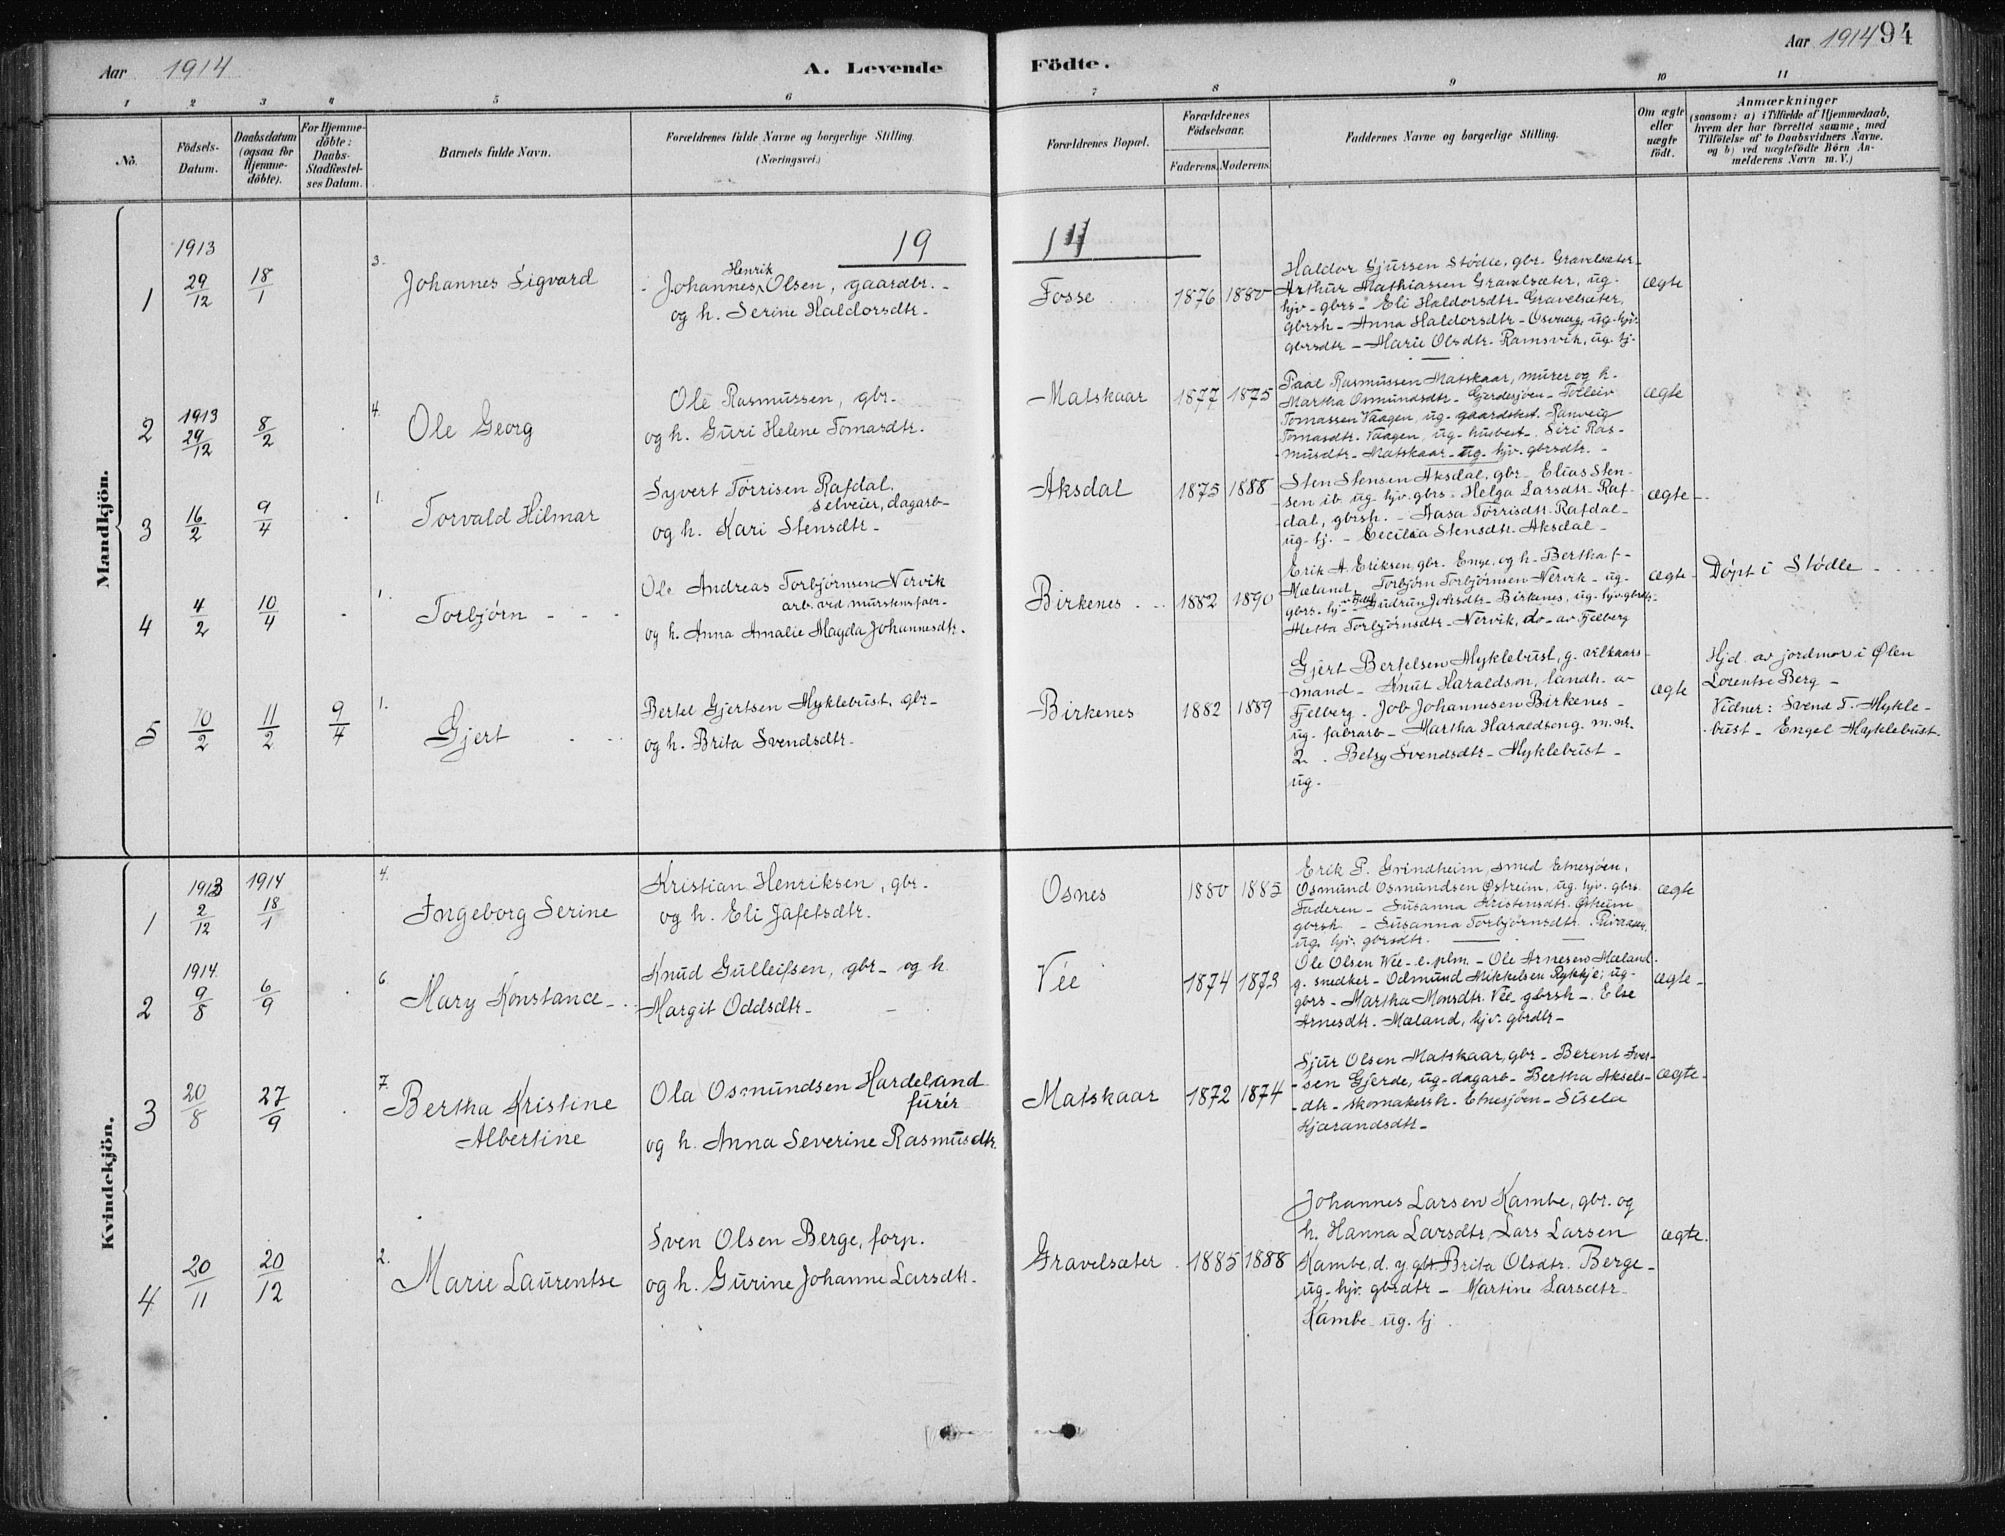 Aar 1914 A. Levende Födte. Aar 1914 94
1 2 3 4 5 6 7 8 9 10 11
No.
Födsels-
Datum.
Daabsdatum
(ogsaa for
Hjemme-
döbte).
For Hjemme-
döbte:
Daabs-
Stadfæstel-
ses Datum.
Barnets fulde Navn.
Forældrenes fulde Navne og borgerlige Stilling.
(Næringsvei.)
Forældrenes Bopæl.
Forældrenes
Födselsaar.
Faderens. Moderens.
Faddernes Navne og borgerlige Stilling.
Om ægte
eller
uægte
födt.
Anmærkninger
(saasom: a) i Tilfælde af Hjemmedaab,
hvem der har forrettet samme, med
Tilföielse af to Daabsvidners Navne,
og b) ved uægtefödte Börn An-
melderens Navn m. V.)
19 14
Mandkjön.
1
1913
29/12
18/1
3.
Johannes Sigvard
Henrik
Johannes Olsen, gaardbr. -
og h. Serine Haldorsdtr -
Fosse
1876 1880
Haldor Sjursen Stödle, gbr. Gravelsæter -
Arthur Mathiassen Gravelsæter, ug.
hjv - gbrs - Eli Haldorsdtr - Gravelsæter,
gbrsh - Anna Haldorsdtr - Osvaag, ug. hjv.
gbrsdtr - Marie Olsdtr. Ramsvik, ug. tj.
ægte
2
1913
29/12
8/2
4.
Ole Georg
Ole Rasmussen, gbr.
og h. Guri Helene Tomasdtr.
Matskaar
1877 1875
Paal Rasmussen Matskaar, murer og h.
Martha Osmundsdtr - Gjerdesjöen - Tolleiv
Tomassen Vaagen, ug. gaardsbest. Ranveig
Tomasdtr. Vaagen, ug. husbest. Siri Ras-
musdtr - Matskaar - ug. hjv. gbrsdtr. -
ægte
3
16/2
9/4
1.
Torvald Hilmar
Syvert Tørrisen Rafdal,
selveier, dagarb -
og h. Kari Stensdtr -
Aksdal
1875 1888
Sten Stensen Aksdal, gbr - Elias Sten-
sen ib. ug. hjv. gbrs - Helga Larsdtr. Raf-
dal, gbrsh. - Aasa Tørrisdtr. Rafdal -
ug. tj. - Cecilia Stensdtr - Aksdal -
ægte -
4
4/2
10/4
1.
Torbjørn - -
Ole Andreas Torbjørnsen Nervik
arb. ved murstensfabr -
og h. Anna Amalie Magda Johannesdtr.
Birkenes
1882 1890
Erik A. Eriksen, gbr. Enge, og h. Bertha f -
Mæland, Torbjørn Torbjørnsen Nervik - ug.
gbrs. hjv - Gudrun Johsdtr - Birkenes, ug. hjv. gbrdtr -
Metta Torbjørnsdtr - Nervik, do - av Fjelberg
ægte -
Døpt i Stödle
5
10/2
11/2
9/4
1.
Gjert
Bertel Gjertsen Myklebust, gbr -
og h. Brita Svendsdtr -
Birkenes
1882 1889
Gjert Bertelsen Myklebust, g. vilkaars-
mand - Knut Haraldson, landh. av
Fjelberg. Job Johannesen Birkenes -
ug. fabrarb - Martha Haraldseng. m. nr.
2. Betsy Svendsdtr - Myklebust -
ug.
ægte
Hjd. av jordmor i Ølen
Lorentse Berg -
Vidner: Svend T. Mykle-
bust - Engel Myklebust.
Kvindekjön.
1
1913
2/12
1914
18/1
4.
Ingeborg Serine
Kristian Henriksen, gbr.
og h. Eli Jafetsdtr.
Osnes
1880 1885
Erik P. Grindheim, smed Etnesjöen,
Osmund Osmundsen Østreim, ug. hjv. gbrs
Faderen - Susanna Kristensdtr. Østreim
gbrsh. - Susanna Torbjørnsdtr.
ug. hjv. gbrsdtr.
ægte
2
1914.
9/8
6/9
6.
Mary Konstance -
Knud Gulleifsen, gbr - og h.
Margit Oddsdtr -
Vée
1874 1873
Ole Olsen Vée - e. plm. - Ole Arnesen Mæland.
g. snedker - Odmund Mikkelsen Rykkje; ug.
gbrs - Martha Monsdtr. Vée - gbrsh - Else
Arnesdtr. Mæland, hjv. gbrdtr -
ægte -
3
20/8
27/9
7.
Bertha Kristine
Albertine
Ola Osmundsen Hardeland
furér
og h. Anna Severine Rasmusdtr.
Matskaar
1872 1874
Sjur Olsen Matskaar, gbr - Berent Iver-
sen Gjerde, ug. dagarb - Bertha Aksels-
dtr - skomakersh - Etnesjöen - Sisela
Hjærandsdtr -
ægte -
4
20/11
20/12
2.
Marie Laurentse
Sven Olsen Berge, forp.
og h. Gurine Johanne Larsdtr.
Gravelsæter
1885 1888
Johannes Larsen Kambe, gbr. og
h. Hanna Larsdtr, Lars Larsen
Kambe, d. y. gbr Brita Olsdtr. Berge -
ug. hjv. gbrdtr - Martine Larsdtr
Kambe - ug. tj.
ægte.